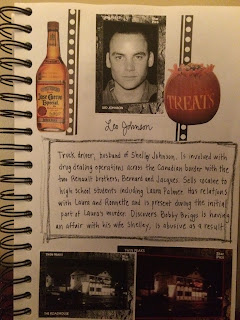 Jose Cuervo
Especial
LEO JOHNSON
TREATS
Leo Johnson
Truck driver, husband of Shelly Johnson. Is involved with
drug dealing operations across the Canadian border with the
two Renault brothers, Bernard and Jacques. Sells cocaine to
high school students including Laura Palmer. Has relations
with Laura and Ronnette and is present during the initial
part of Laura's murder. Discovers Bobby Briggs is having
an affair with his wife Shelley, is abusive as a result.
TWIN PEAKS
TWIN PEAKS
THE ROADHOUSE